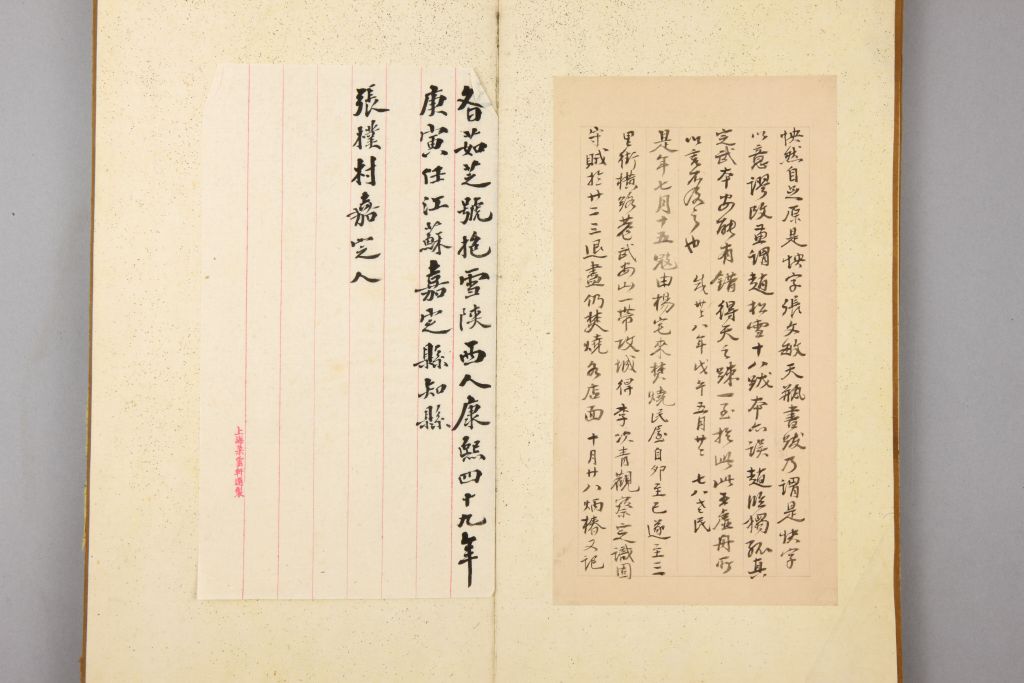 怏然自足原是怏字張文敏天瓶書跋乃謂是快字
以意謬改並謂趙松雪十八跋本亦誤趙臨獨孤真
定武本安能有錯得天之疎一至於此此王虛舟所
以言不足之也
歲 八年戊午五月廿 七八老民
是年七月十五寇由楊宅來焚燒民屋自卯至巳遂至三
里街橫路巷武安山一帶攻城得李次青觀察定識固
守賊於廿二三退盡仍焚燒各店面十月廿八炳椿又記
昝茹芝號抱雪陝西人康熙四十九年
庚寅任江蘇嘉定縣知縣
張樸村嘉定人
上海朵雲軒製